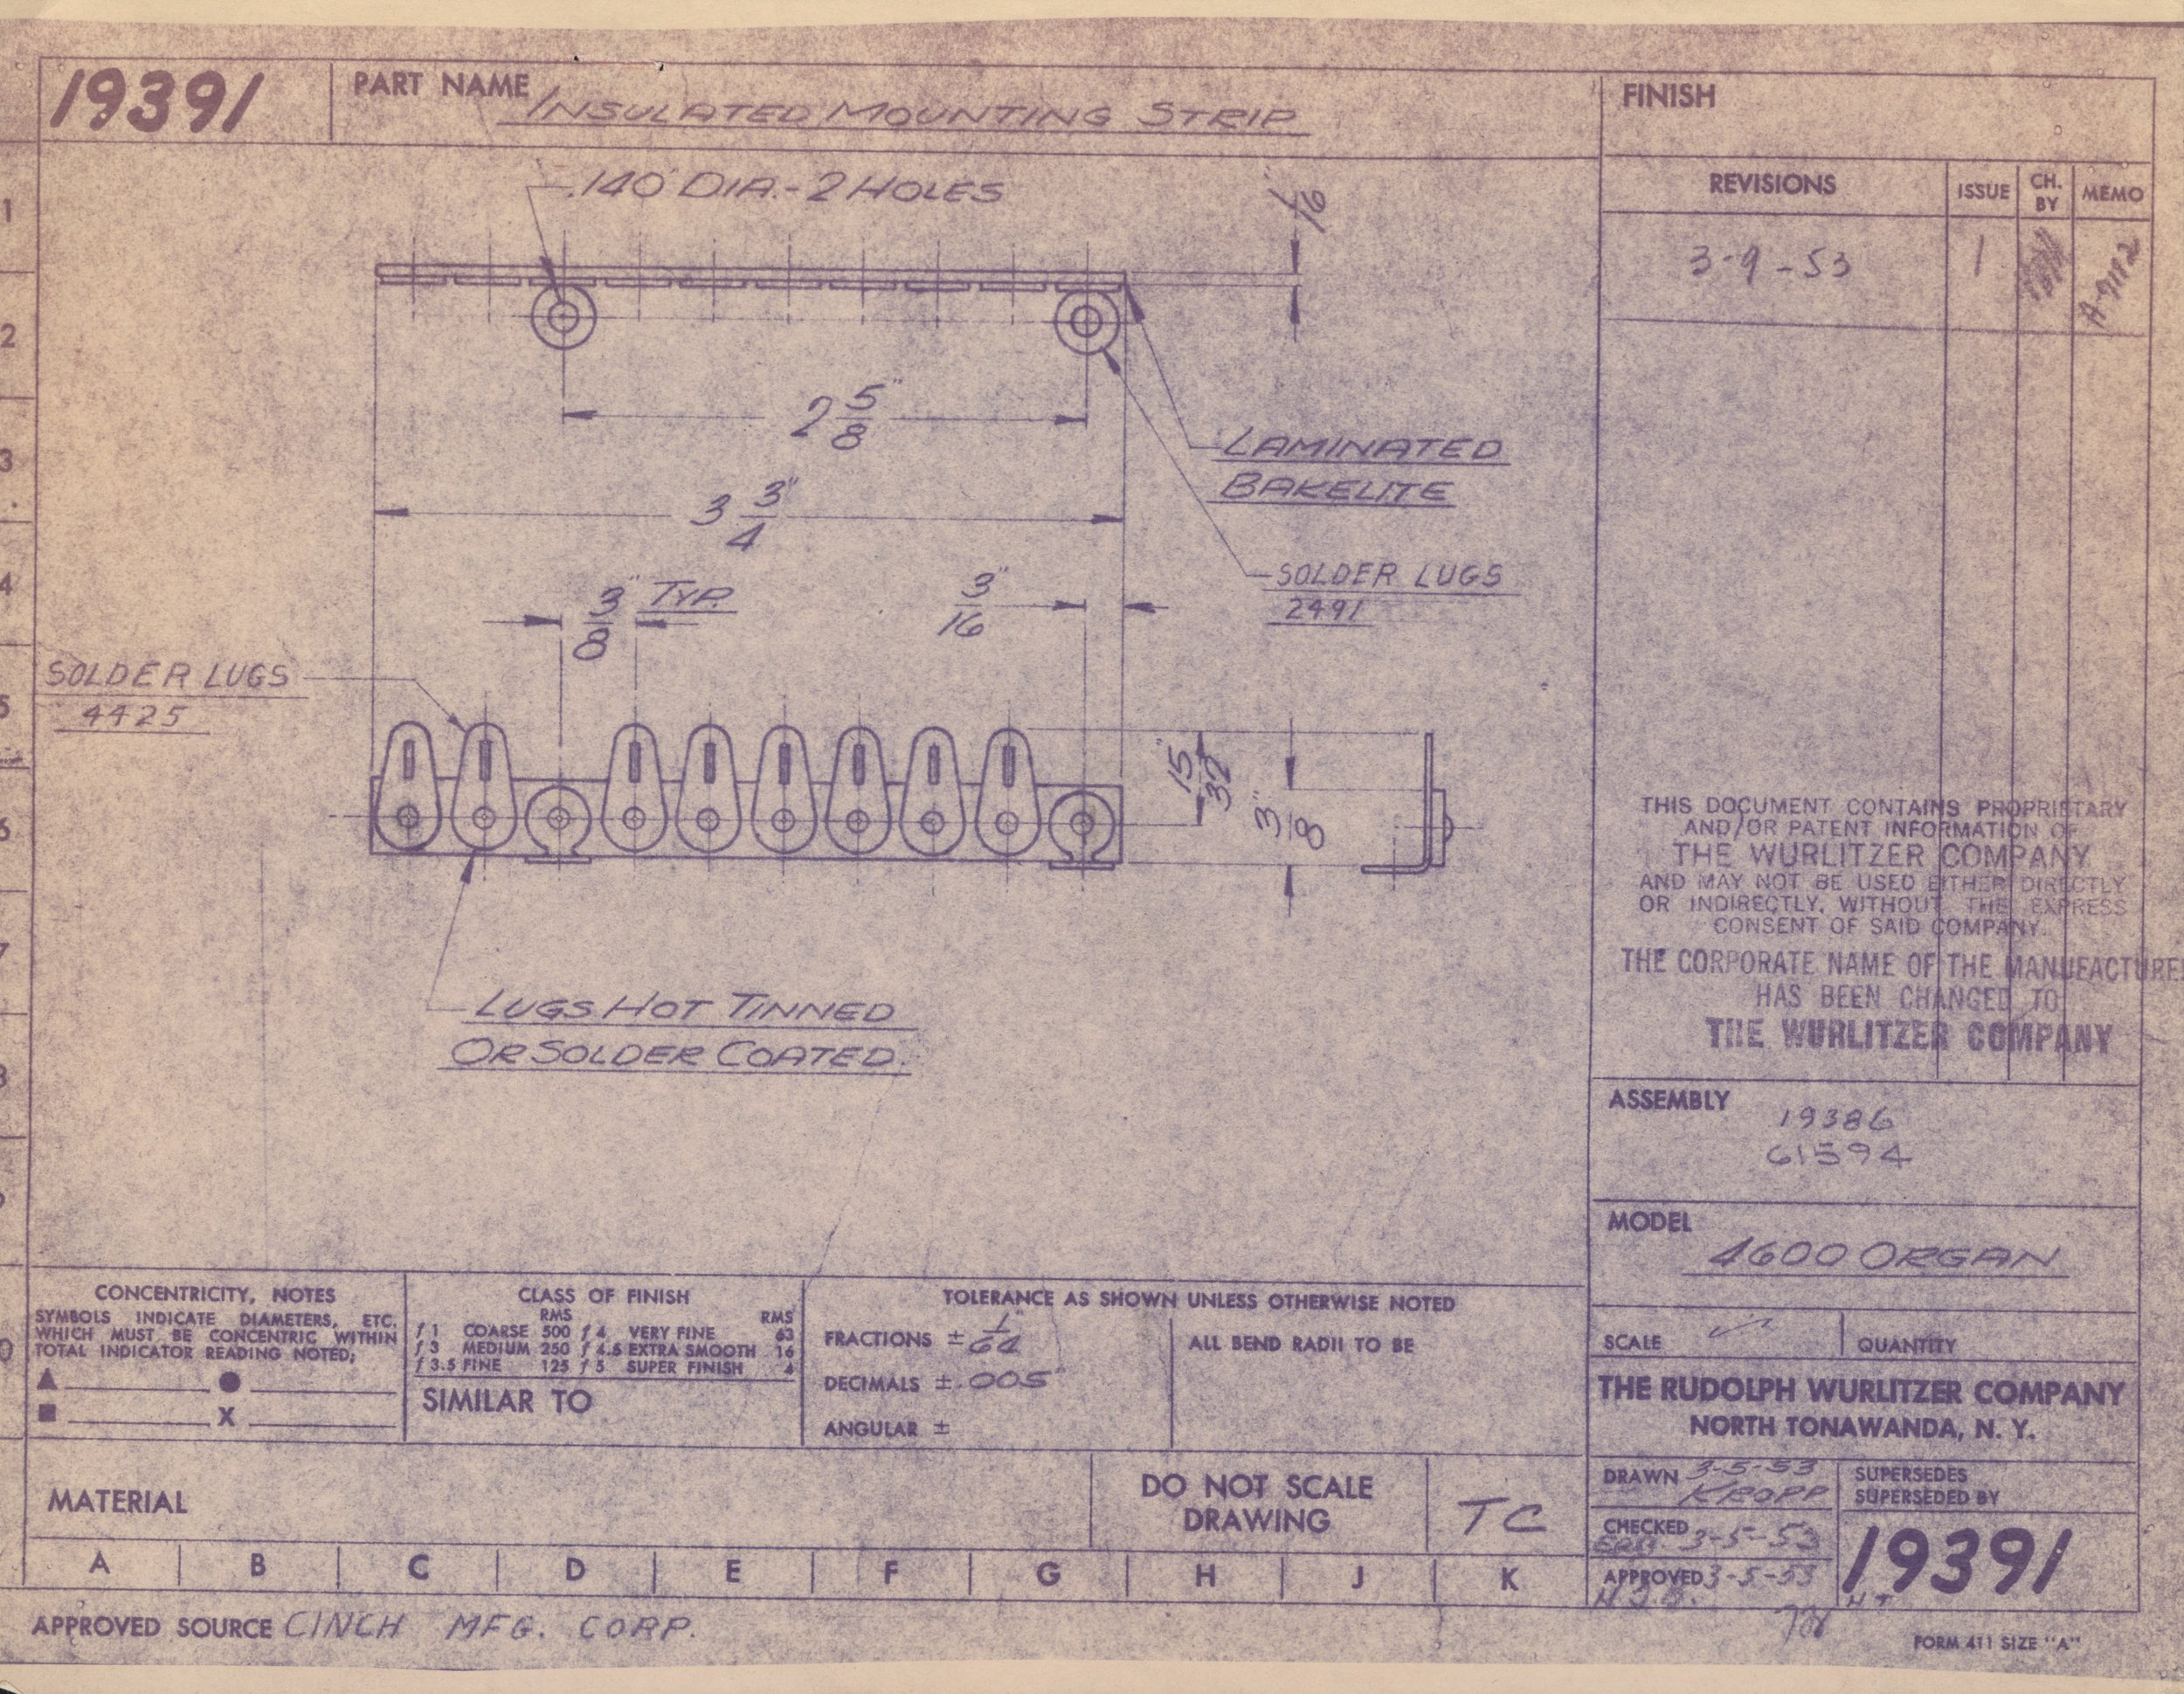 19391
PART NAME INSULATED MOUNTING STRIP
FINISH
REVISIONS ISSUE CH. BY MEMO
3-9-53 1 A-9112
.140" DIA.-2 HOLES
1/16"
2 5/8"
3 3/4"
LAMINATED
BAKELITE
SOLDER LUGS
2491
3/8" TYP.
3/16"
SOLDER LUGS
4425
15/32"
3/8"
LUGS HOT TINNED
OR SOLDER COATED.
1
2
3
4
5
6
7
8
9
0
THIS DOCUMENT CONTAINS PROPRIETARY
AND/OR PATENT INFORMATION OF
THE WURLITZER COMPANY
AND MAY NOT BE USED EITHER DIRECTLY
OR INDIRECTLY, WITHOUT THE EXPRESS
CONSENT OF SAID COMPANY.
THE CORPORATE NAME OF THE MANUFACTURE
HAS BEEN CHANGED TO
THE WURLITZER COMPANY
ASSEMBLY
19386
61594
MODEL
4600 ORGAN
SCALE QUANTITY
THE RUDOLPH WURLITZER COMPANY
NORTH TONAWANDA, N. Y.
DRAWN 3-5-53
KROPP
CHECKED 3-5-53
APPROVED 3-5-53
H.J.B.
SUPERSEDES
SUPERSEDED BY
19391
CONCENTRICITY, NOTES
SYMBOLS INDICATE DIAMETERS, ETC.
WHICH MUST BE CONCENTRIC WITHIN
TOTAL INDICATOR READING NOTED;
▲ ●
■ X
CLASS OF FINISH
RMS RMS
f 1 COARSE 500 f 4 VERY FINE 63
f 3 MEDIUM 250 f 4.5 EXTRA SMOOTH 16
f 3.5 FINE 125 f 5 SUPER FINISH 4
SIMILAR TO
TOLERANCE AS SHOWN UNLESS OTHERWISE NOTED
FRACTIONS ± 1/64"
DECIMALS ± .005"
ANGULAR ±
ALL BEND RADII TO BE
MATERIAL
DO NOT SCALE
DRAWING
TC
A B C D E F G H J K
APPROVED SOURCE CINCH MFG. CORP.
FORM 411 SIZE "A"